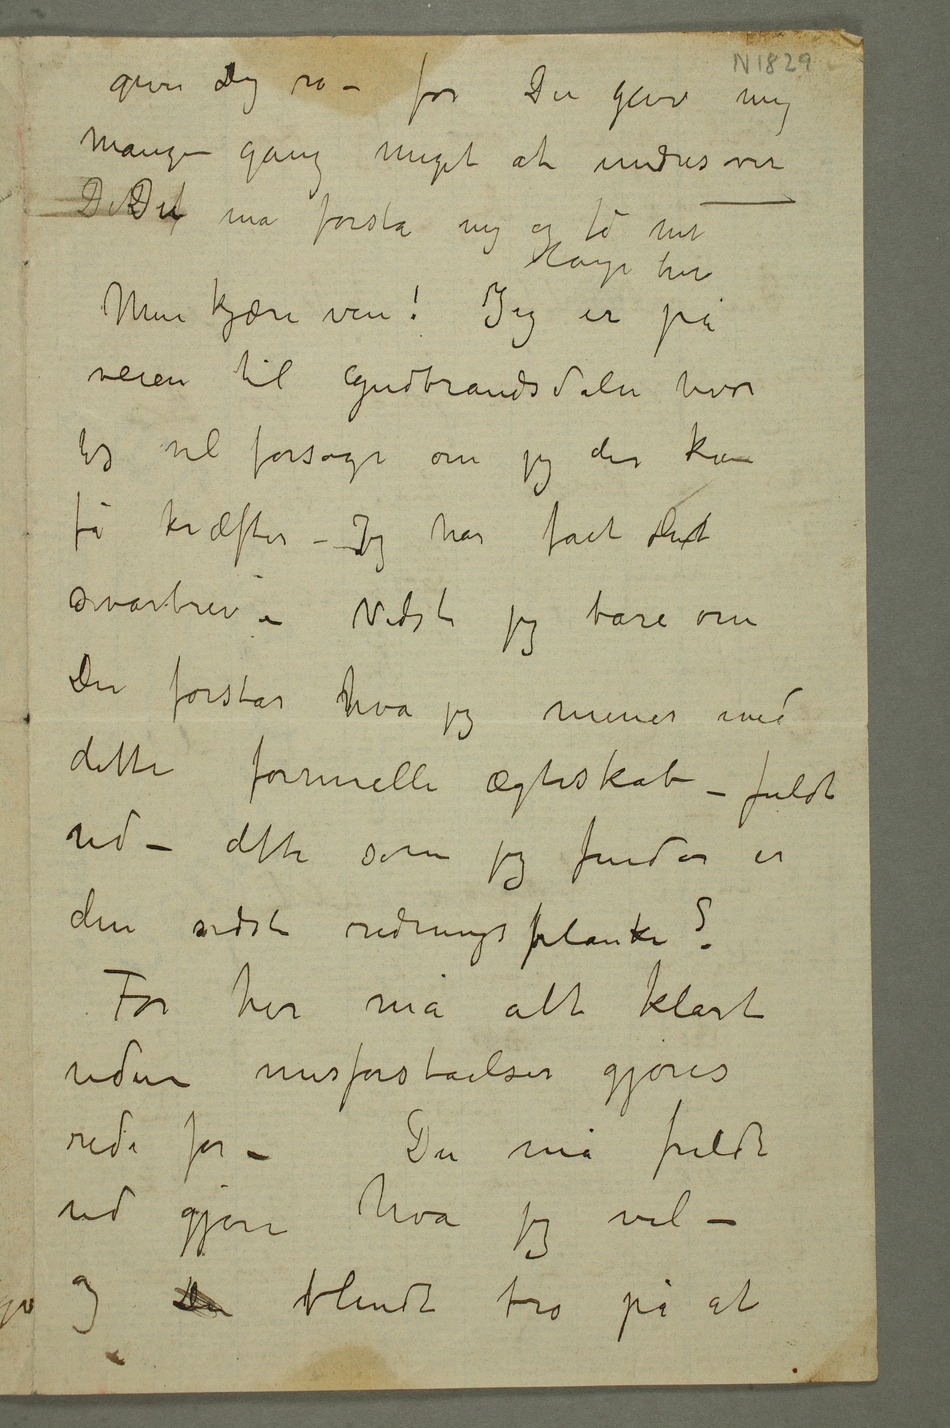 N1829
give Dig ro – for Du gave mig
mangen gang meget at undres over
Du må forstå mig og få mit
lange brev
Min kjære ven! Jeg er på
veien til Gudbrandsdalen hvor
jeg vil forsøge om jeg der kan
få kræfter – Jeg har fåt dit
svarbrev – Vidste jeg bare om
Du forstår hva jeg mener med
dette formelle ægteskab – fuldt
ud – dette som jeg finder er
den sidste redningsplanke?
For her må alt klart
uden misforståelser gjøres
rede for – Du må fuldt
ud gjøre hva jeg vil –
og blindt tro på at